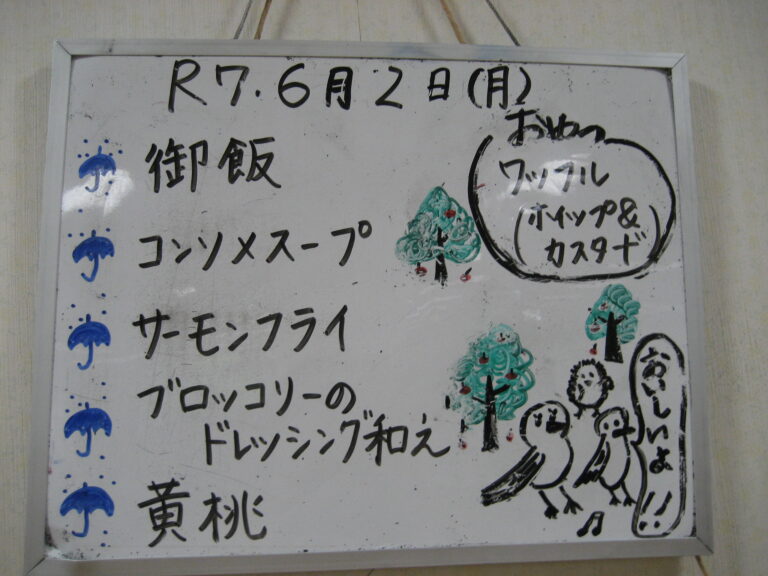 R7.6月2日(月)
御飯
コンソメスープ
サーモンフライ
ブロッコリーの
ドレッシング和え
黄桃
おやつ
ワッフル
(ホイップ&
カスタード)
おいしいよ!!